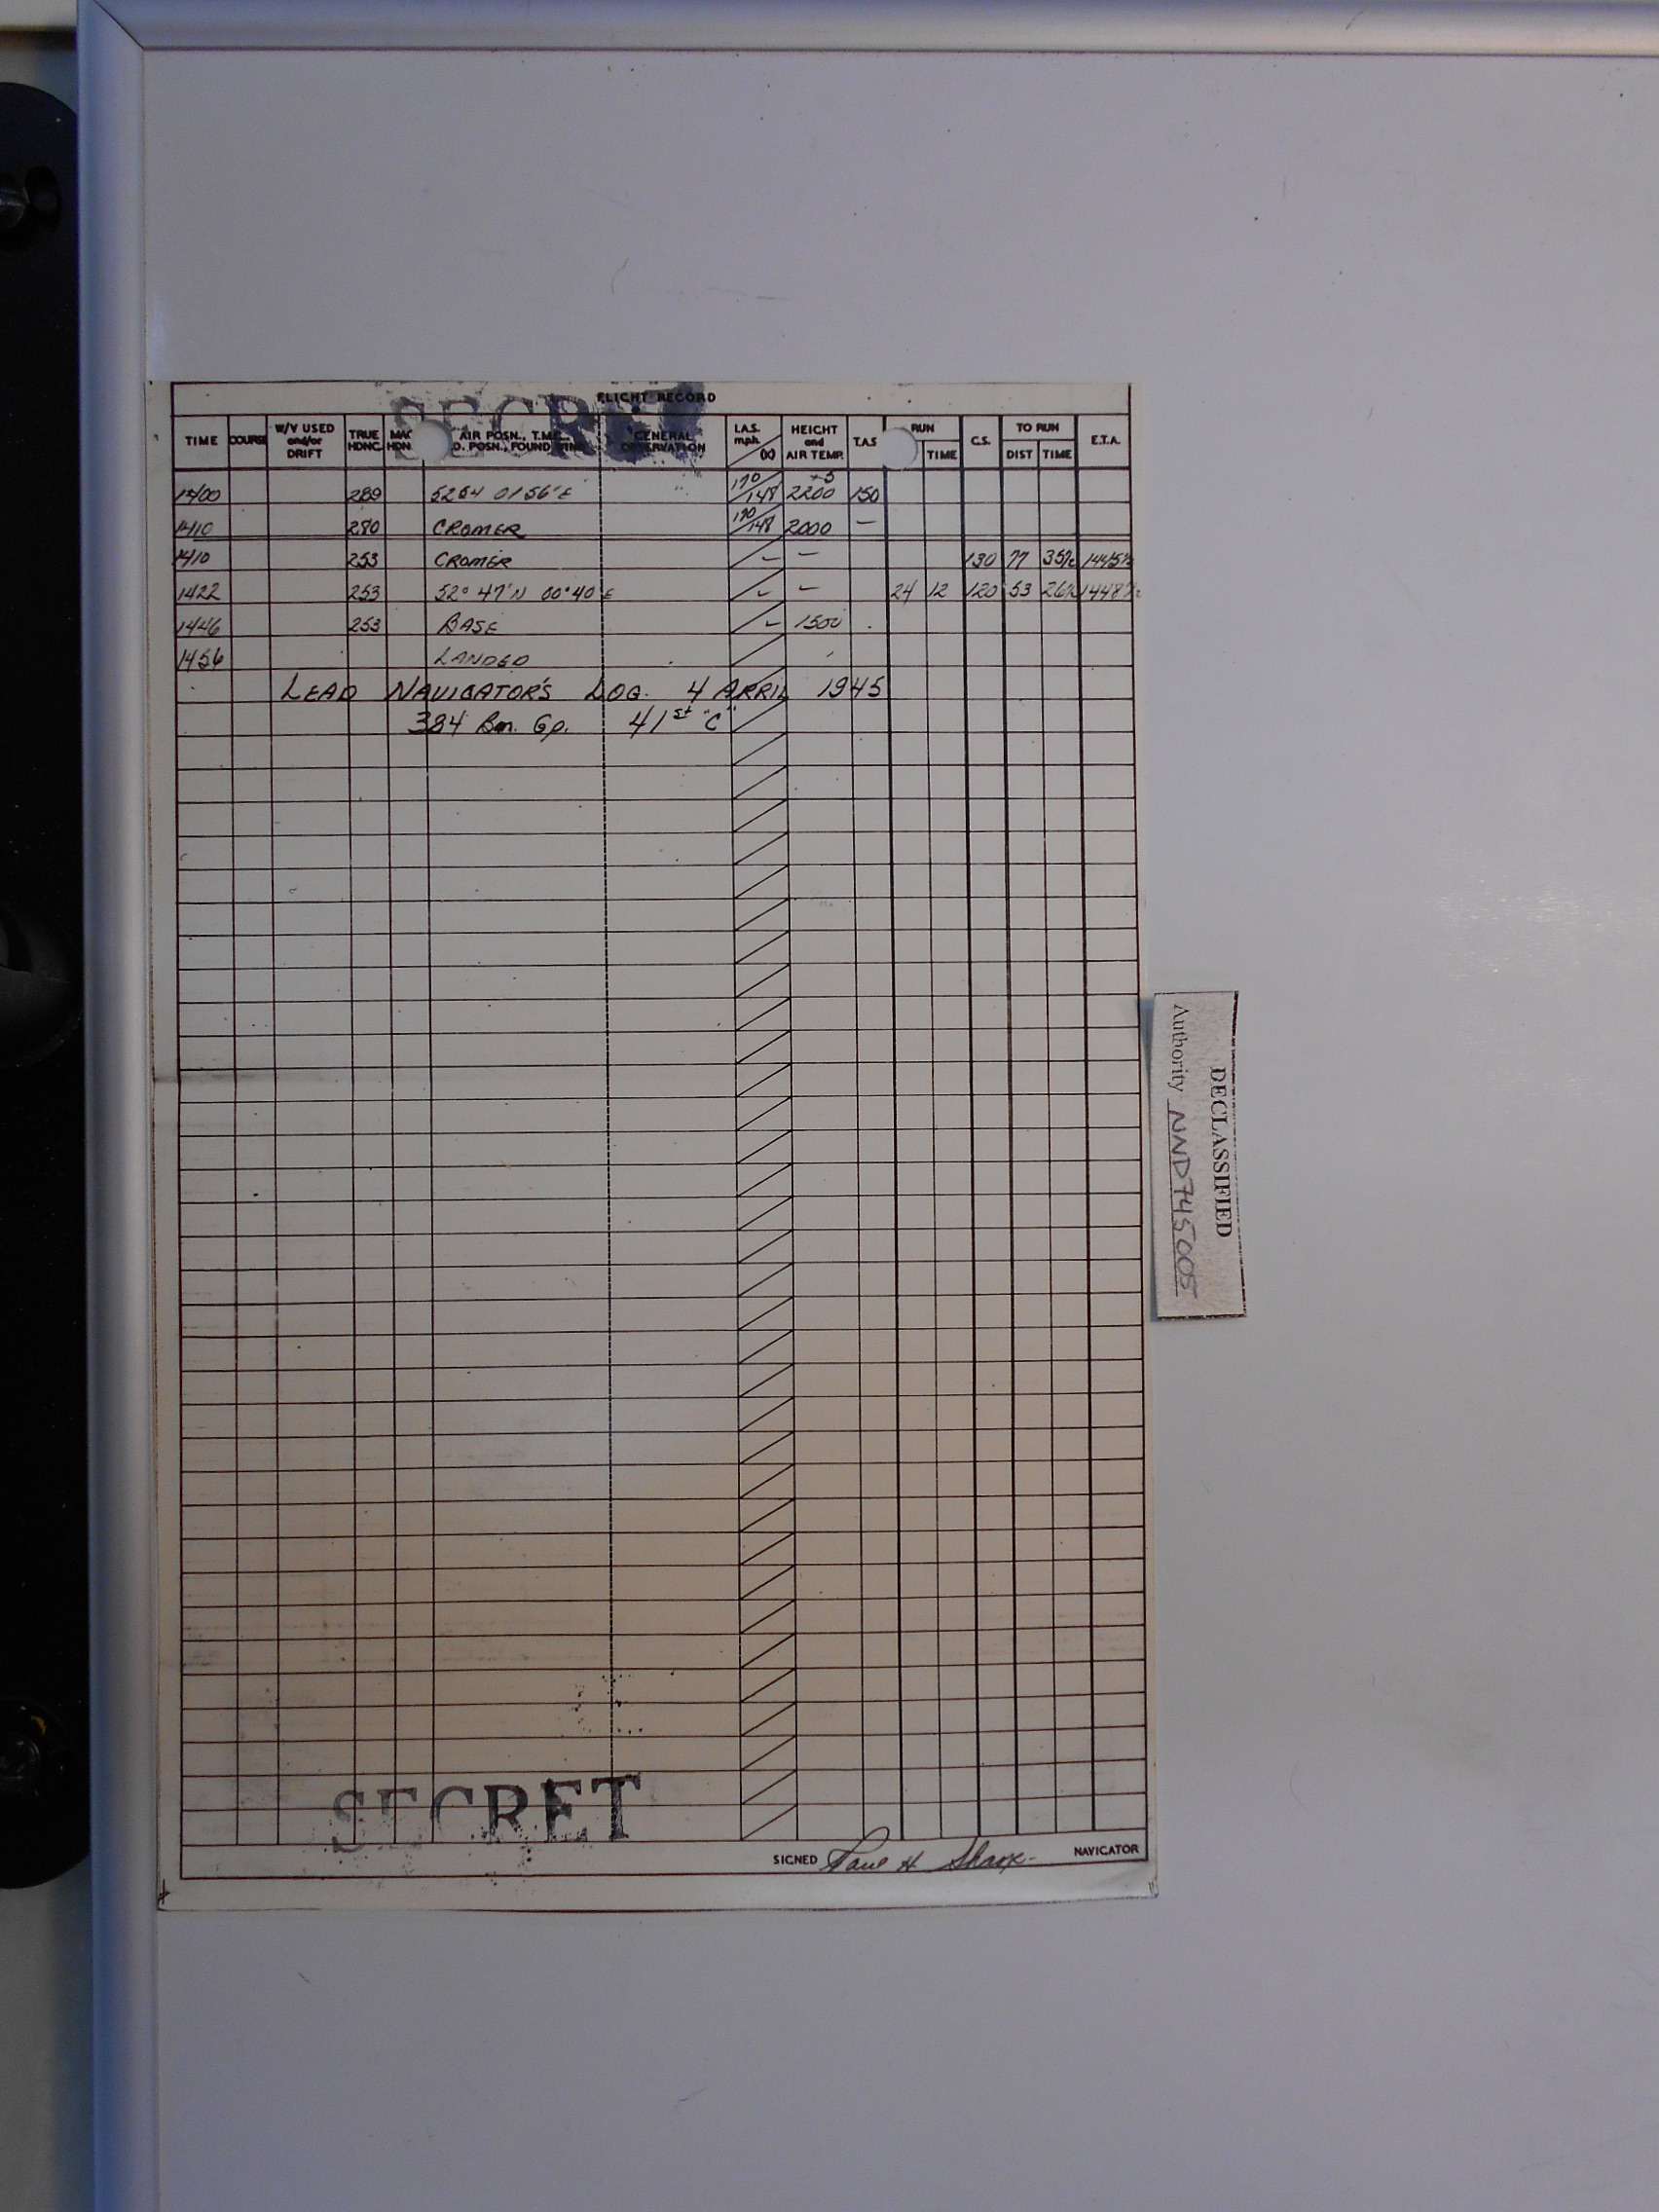 SECRET
FLIGHT RECORD
TIME COURSE W/V USED and/or DRIFT TRUE HDNG. MAG HDN AIR POSN., T.M.G., D. POSN., FOUND WIND GENERAL OBSERVATION I.A.S. mph. HEIGHT and AIR TEMP. T.A.S RUN TIME G.S. TO RUN DIST TIME E.T.A.
1400 289 5254 0156'E 170/148 +5 2200 150
1410 280 CROMER 170/148 2000 —
1410 253 CROMER – – 130 77 35½ 1445½
1422 253 52° 47'N 00°40'E – – 24 12 120 53 26½ 1448½
1446 253 BASE – 1500
1456 LANDED
LEAD NAVIGATOR'S LOG. 4 APRIL 1945
384 Bm. Gp. 41st "C"
SECRET
SIGNED Paul H NAVIGATOR
DECLASSIFIED
Authority NND745005